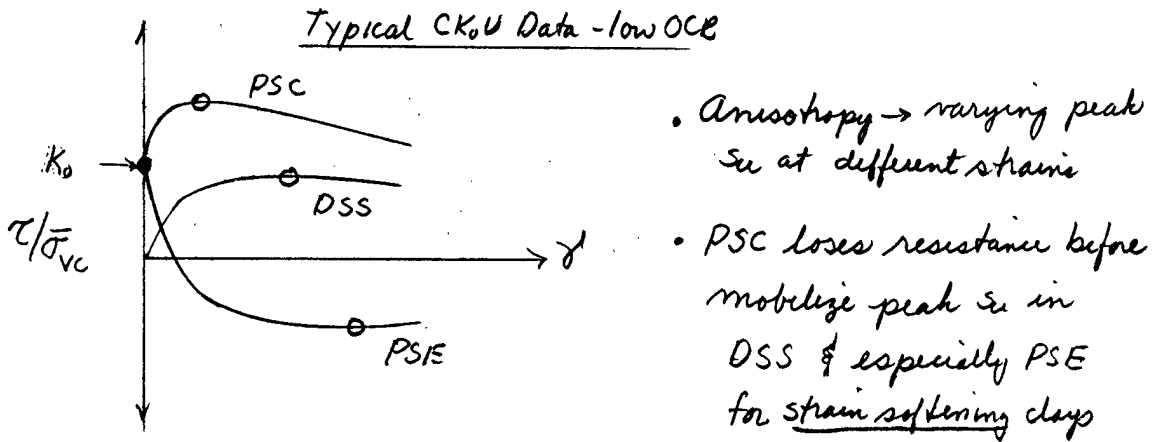 Typical CK₀U Data - low OCR
PSC
K₀
DSS
τ/σ̄vc
γ
PSE
• Anisotropy → varying peak
su at different strains
• PSC loses resistance before
mobilize peak su in
DSS & especially PSE
for strain softening clays